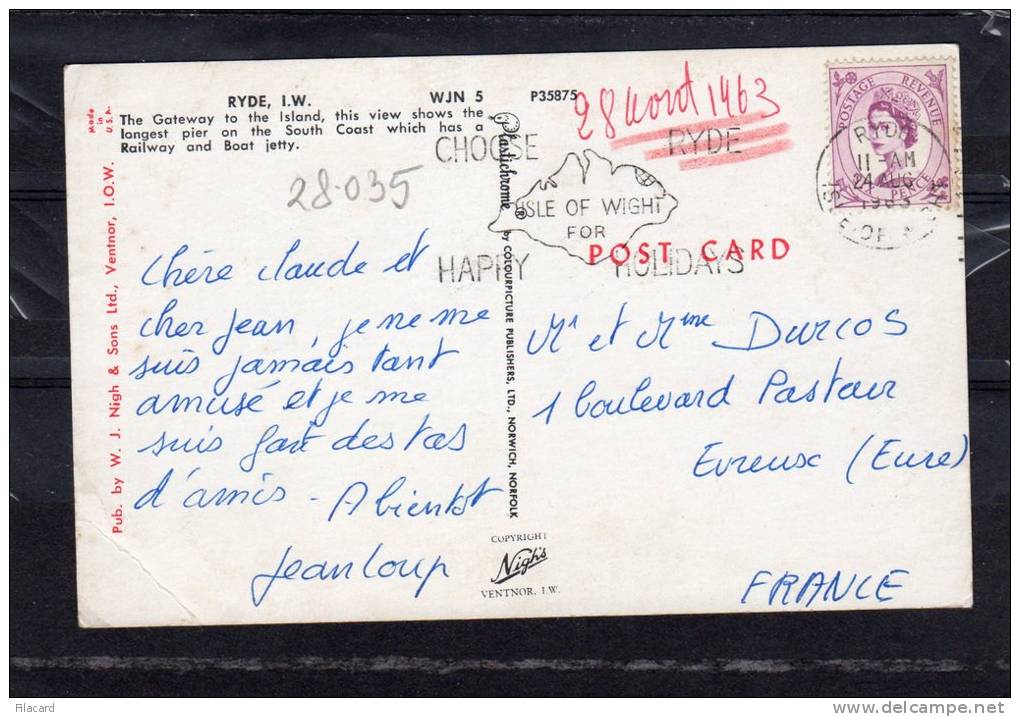 RYDE, I.W. WJN 5 P35875
The Gateway to the Island, this view shows the
longest pier on the South Coast which has a
Railway and Boat jetty.
Made in U.S.A.
Pub. by W. J. Nigh & Sons Ltd., Ventnor, I.O.W.
28-035
28 août 1963
POSTAGE REVENUE
PENCE
RYDE
11-AM
24 AUG
1963
ISLE OF WIGHT
CHOOSE RYDE
ISLE OF WIGHT
FOR
HAPPY HOLIDAYS
POST CARD
Plastichrome ® by COLOURPICTURE PUBLISHERS, LTD., NORWICH, NORFOLK
Chère Claude et
cher Jean, je ne me
suis jamais tant
amusé et je me
suis fait des tas
d'amis - A bientôt
Jeanloup
Mr et Mme Durcos
1 boulevard Pasteur
Evreux (Eure)
FRANCE
COPYRIGHT
Nigh's
VENTNOR. I.W.
filacard
www.delcampe.net